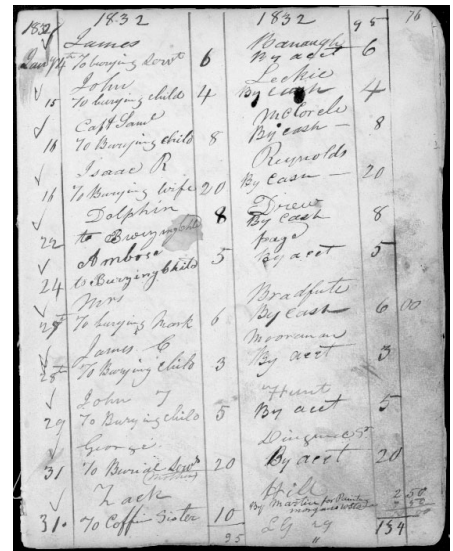 1832 1832 1832 95 76
James Banaugh
Jany 14 To burying Servt 6 By acct 6
John Leckie
15 To burying child 4 By cash 4
Capt Saml McCorcle
16 To Burying child 8 By cash — 8
Isaac R Reynolds
16 To Burying wife 20 By cash — 20
Dolphin Drew
22 to Burying 8 By cash 8
Ambose Page
24 to Burying Child 5 By acct 5
Mrs Bradfute
25th To burying Mark 6 By cash 6 00
James C Moorman
28th To Burying child 3 By acct 3
John T Hunt
29 To Burying child 5 By acct 5
George
31 To Burial Servt 20 By acct 20
Zack Hill
31. To Coffin Sister 10 By Martin for 2 50
95 134